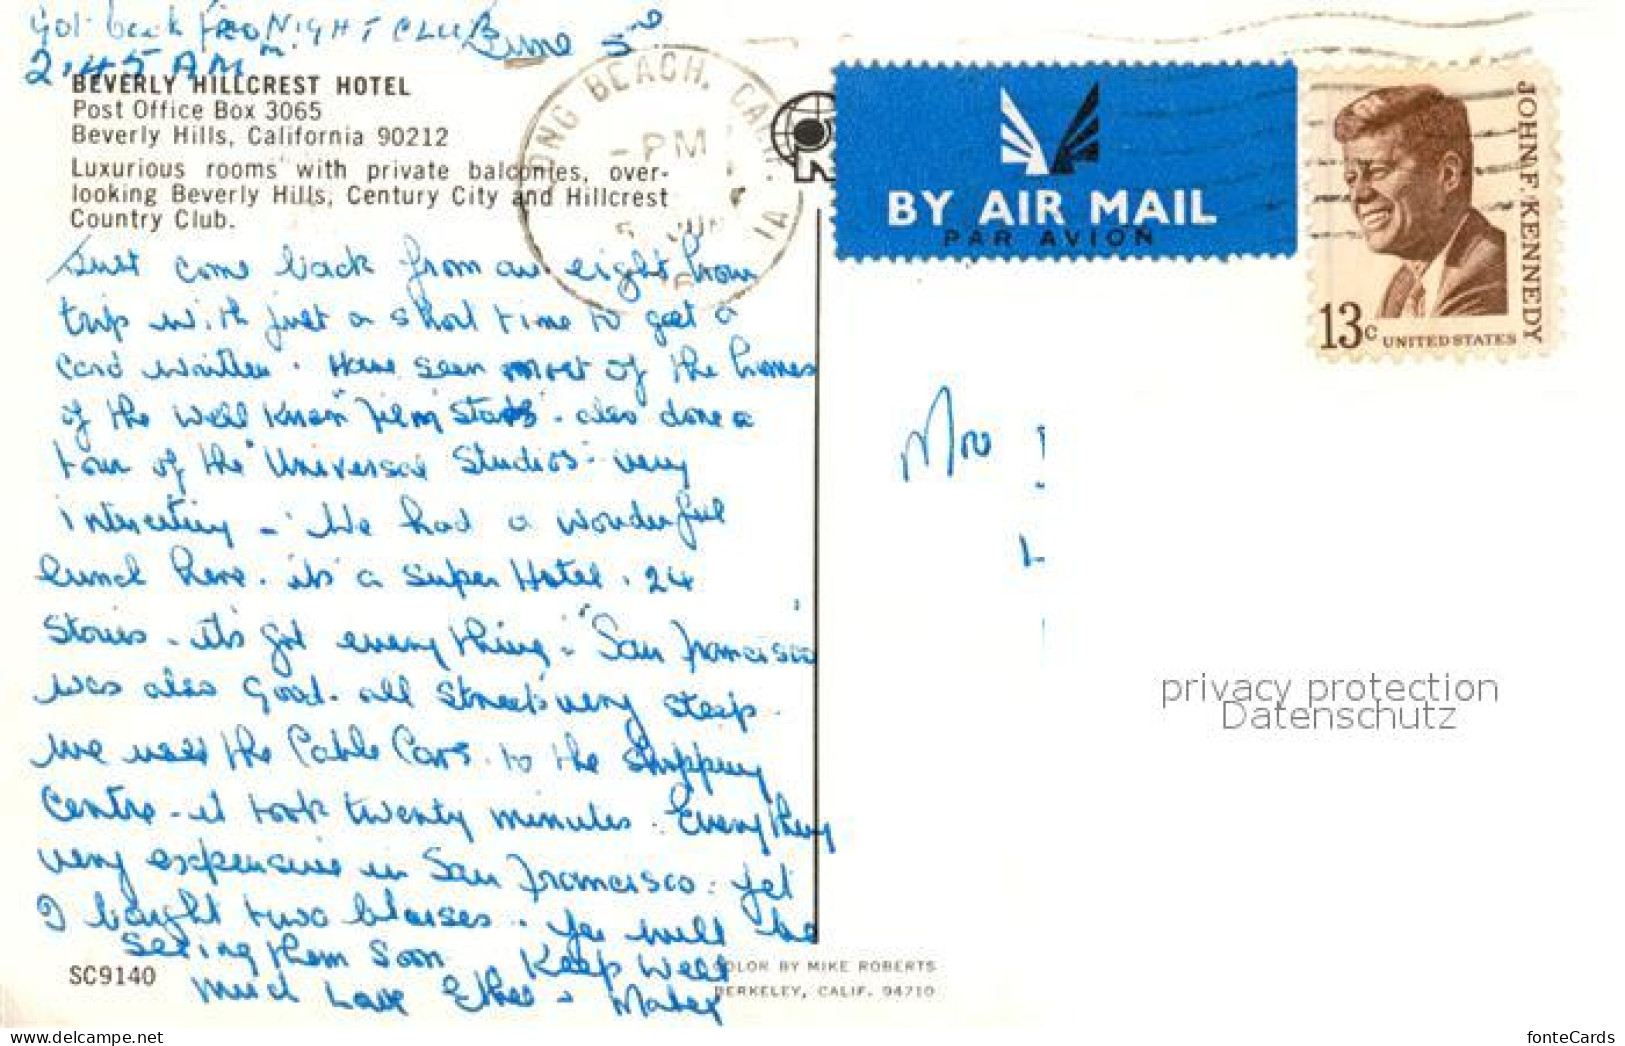 Got back from NIGHT CLUB
2.45 AM
June 5
BEVERLY HILLCREST HOTEL
Post Office Box 3065
Beverly Hills, California 90212
Luxurious rooms with private balconies, over-
looking Beverly Hills, Century City and Hillcrest
Country Club.
LONG BEACH, CALIFORNIA
PM
5 JUN
BY AIR MAIL
PAR AVION
JOHN F. KENNEDY
13c UNITED STATES
Just come back from an eight hour
trip with just a short time to get a
card written. Have seen most of the homes
of the well known "film stars" - also done a
tour of the "Universal Studios" - very
interesting - We had a wonderful
lunch here. it's a super Hotel. 24
Stories - it's got everything - "San Francisco"
was also good. all streets very steep.
We used the Cable Cars to the shopping
Centre - it took twenty minutes. Everything
very expensive in San Francisco. Yet
I bought two blouses. Ye will be
seeing them soon. Keep well
Much Love Ethel & Mabel
Mrs
privacy protection
Datenschutz
SC9140
COLOR BY MIKE ROBERTS
BERKELEY, CALIF. 94710
fonteCards